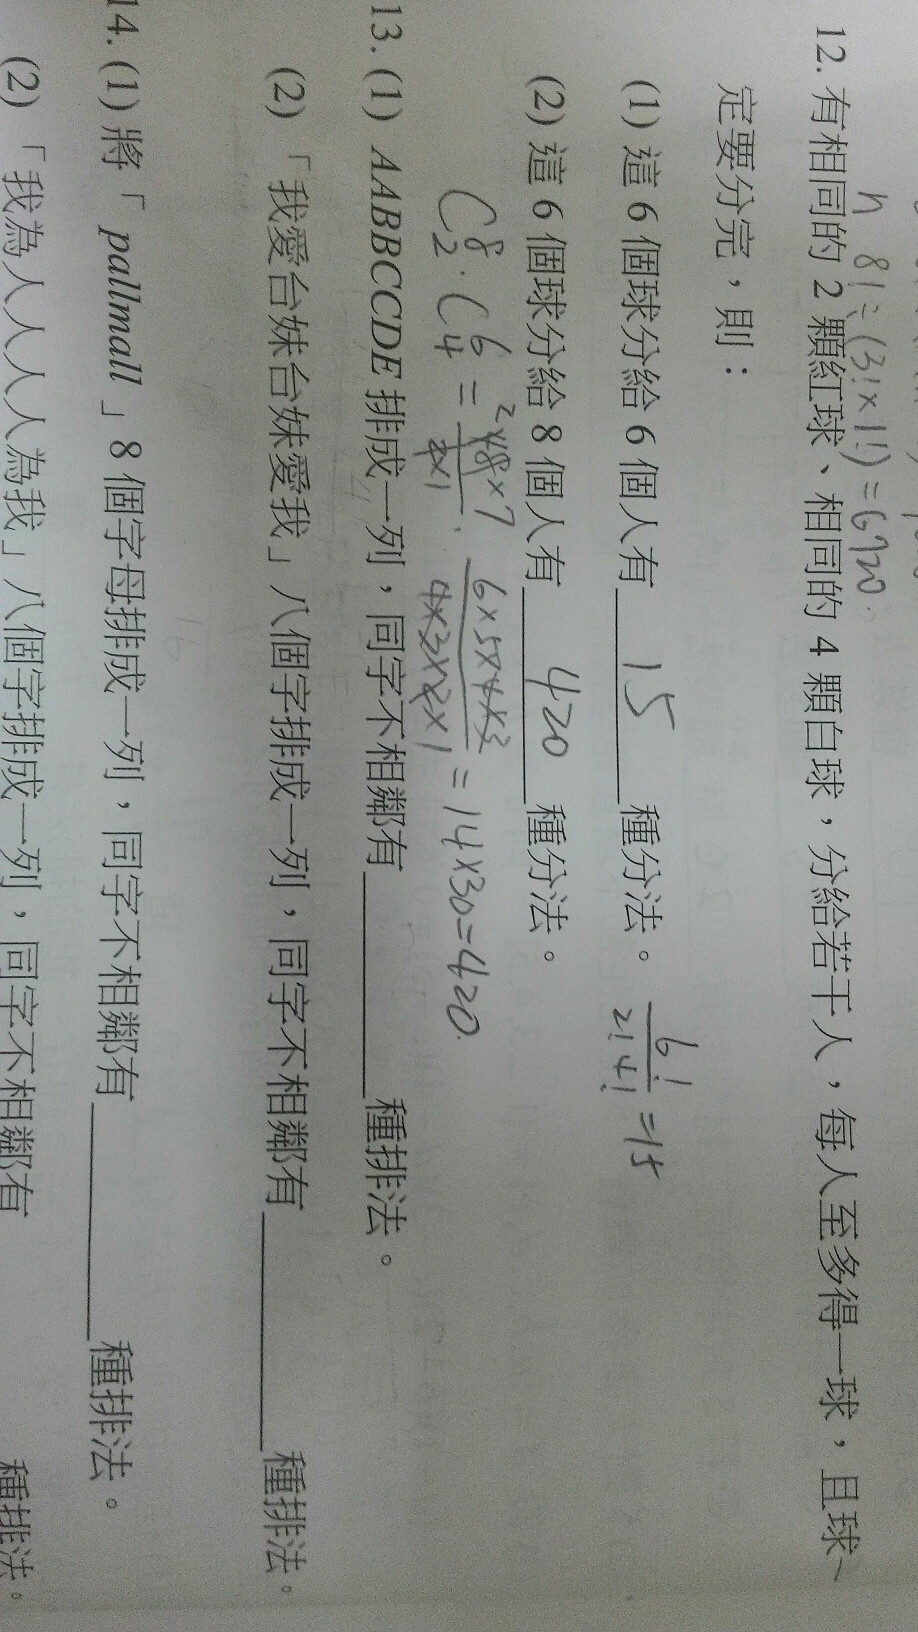 n 8!÷(3!×1!)=6720.
12. 有相同的 2 顆紅球、相同的 4 顆白球，分給若干人，每人至多得一球，且球一
定要分完，則：
(1) 這 6 個球分給 6 個人有 15 種分法。 6!/2!4! =15
(2) 這 6 個球分給 8 個人有 420 種分法。
C⁸₂．C⁶₄ = 8×7/2×1．6×5×4×3/4×3×2×1 = 14×30=420.
13. (1) AABBCCDE 排成一列，同字不相鄰有 種排法。
(2) 「我愛台妹台妹愛我」八個字排成一列，同字不相鄰有 種排法。
14. (1) 將「pallmall」8 個字母排成一列，同字不相鄰有 種排法。
(2) 「我為人人人人為我」八個字排成一列，同字不相鄰有 種排法。